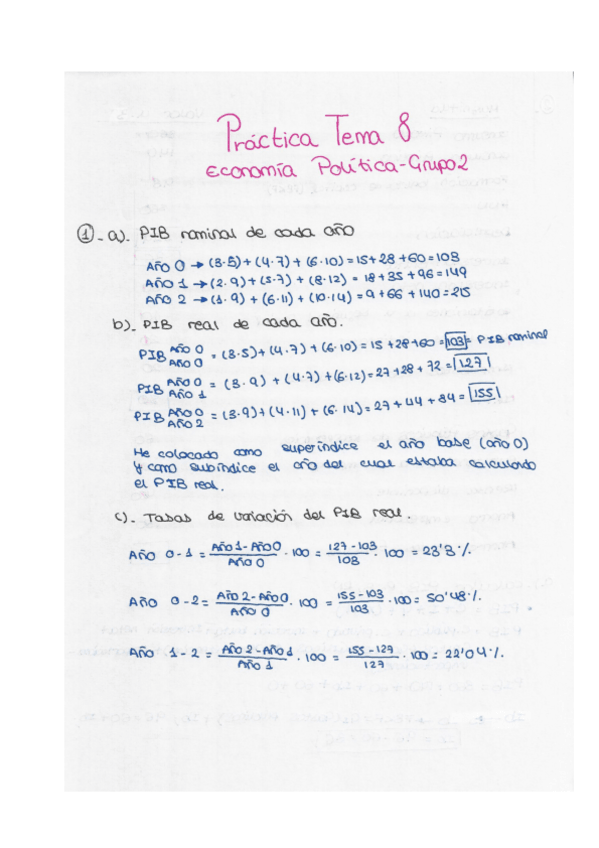 Práctica Tema 8
Economía Política-Grupo 2
①-a)- PIB nominal de cada año
Año 0 → (3·5)+(4·7)+(6·10)=15+28+60=103
Año 1 → (2·9)+(5·7)+(8·12)=18+35+96=149
Año 2 → (1·9)+(6·11)+(10·14)=9+66+140=215
b)- PIB real de cada año.
PIB Año 0 Año 0 = (3·5)+(4·7)+(6·10)=15+28+60=103= PIB nominal
PIB Año 0 Año 1 = (3·9)+(4·7)+(6·12)=27+28+72=127
PIB Año 0 Año 2 = (3·9)+(4·11)+(6·14)=27+44+84=155
He colocado como superíndice el año base (año 0)
y como subíndice el año del cual estaba calculando
el PIB real.
c)- Tasas de variación del PIB real.
Año 0-1 = Año 1-Año 0 / Año 0 · 100 = 127-103 / 103 · 100 = 23'3 %.
Año 0-2 = Año 2-Año 0 / Año 0 · 100 = 155-103 / 103 · 100 = 50'48 %.
Año 1-2 = Año 2-Año 1 / Año 1 · 100 = 155-127 / 127 · 100 = 22'04 %.